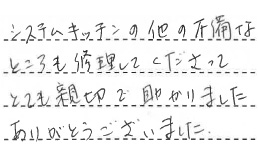 システムキッチンの他の不備な
ところも修理してくださって
とても親切で助かりました
ありがとうございました.